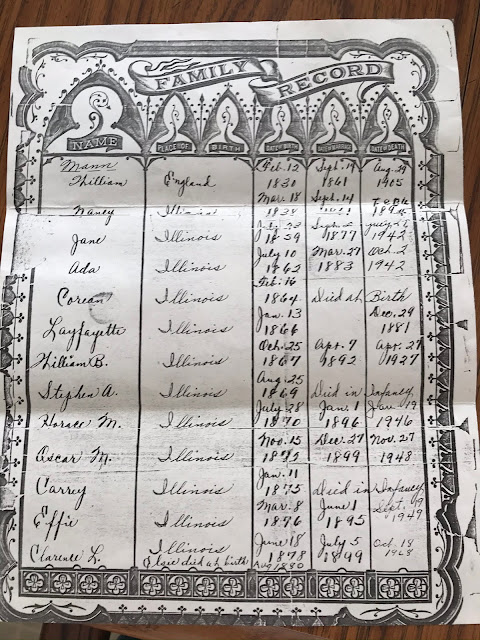 FAMILY RECORD
NAME PLACE OF BIRTH DATE OF BIRTH DATE OF MARRIAGE DATE OF DEATH
Mann Feb. 12 Sept. 19 Aug. 29
William England 1831 1861 1905
Mar. 18 Sept. 19
Nancy Illinois 1838
Jane Illinois 1859 1877 1942
July 10 Mar. 27 Oct. 2
Ada Illinois 1862 1883 1942
Feb. 16
Corean Illinois 1864 Died at Birth
Jan. 13 Dec. 29
Layfayette Illinois 1866 1881
Oct. 25 Apr. 7 Apr. 27
William B. Illinois 1867 1892 1927
Aug. 25
Stephen A. Illinois 1869 Died in Infancy
July 28 Jan. 1 Jan. 19
Horace M. Illinois 1870 1896 1946
Nov. 15 Dec. 27 Nov. 27
Oscar M. Illinois 1899 1948
Jan. 11
Carrey Illinois 1875 died in Infancy
Mar. 8 June 1 Sept. 19
Effie Illinois 1876 1895 1949
June 18 July 5 Oct. 18
Clarence L. Illinois 1878 1899
Elsie died at birth Aug 1880